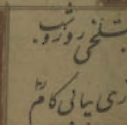 بتلخی روز و شب
ری بیابی کام